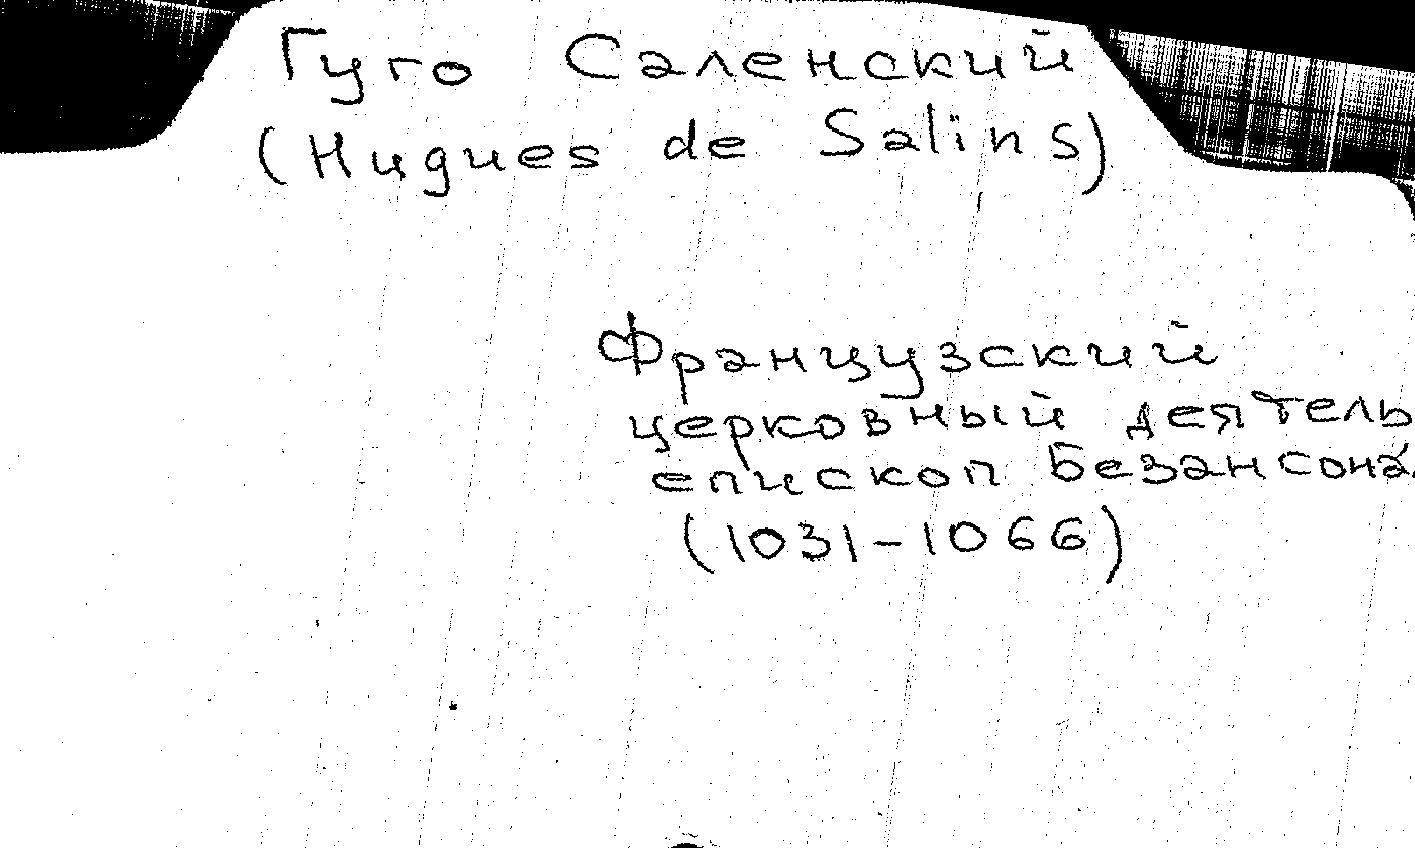 Гуго Саленский
(Hugues de Salins)
Французский
церковный деятель
епископ Безансона
(1031-1066)